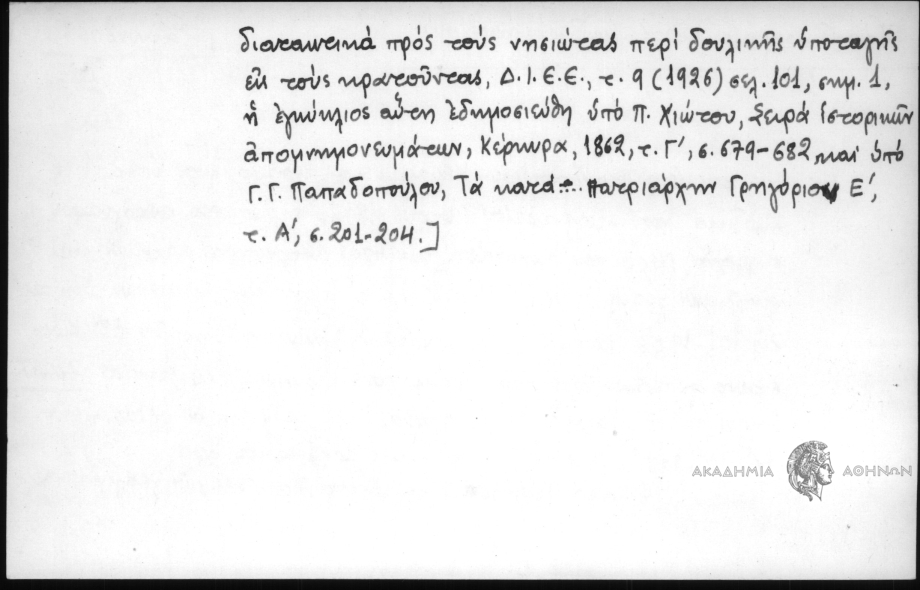 διατακτικά πρός τούς νησιώτας περί δουλικῆς ὑποταγῆς
εἰς τούς κρατοῦντας, Δ.Ι.Ε.Ε., τ. 9 (1926) σελ. 101, σημ. 1,
ἡ ἐγκύκλιος αὕτη ἐδημοσιεύθη ὑπό Π. Χιώτου, Σειρά ἱστορικῶν
ἀπομνημονευμάτων, Κέρκυρα, 1862, τ. Γ', σ. 679-682, καί ὑπό
Γ. Γ. Παπαδοπούλου, Τά κατά... πατριάρχην Γρηγόριον Ε',
τ. Α', σ. 201-204.]
ΑΚΑΔΗΜΙΑ ΑΘΗΝΩΝ